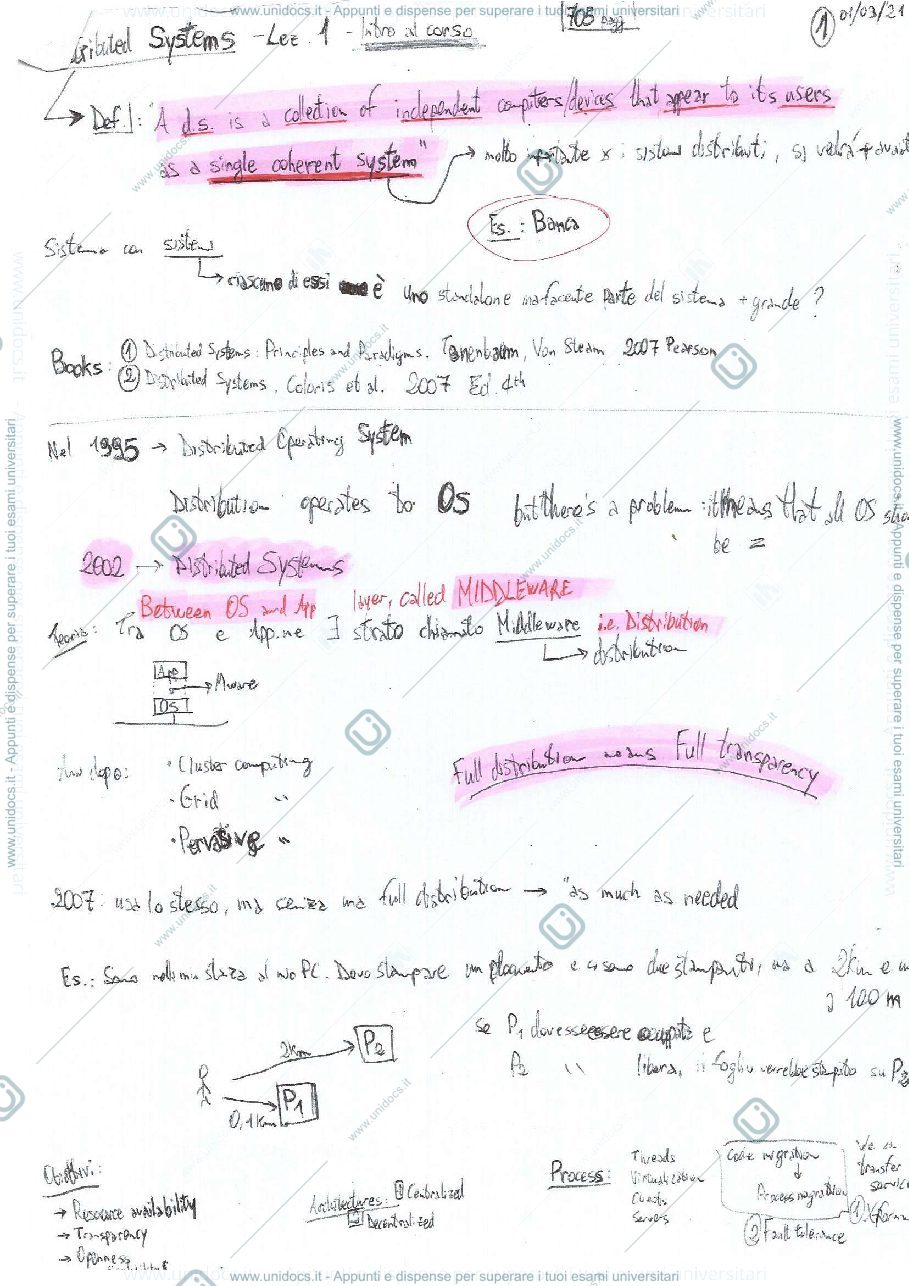 www.unidocs.it - Appunti e dispense per superare i tuoi esami universitari
705 pagg
1 01/03/21
tributed Systems - Lez. 1 - Intro al corso
Def.: "A d.s. is a collection of independent computers/devices that appear to its users
as a single coherent system"
molto x i sistemi distribuiti, si vedrà + avanti
Es.: Banca
Sistema con sistemi
ciascuno di essi è uno standalone ma facente parte del sistema + grande?
Books: 1 Distributed Systems: Principles and Paradigms. Tanenbaum, Van Steam 2007 Pearson
2 Distributed Systems, Coloris et al. 2007 Ed. 4th
Nel 1995 → Distributed Operating System
Distribution operates to OS but there's a problem: it means that all OS
be =
2002 → Distributed Systems
Between OS and App layer, called MIDDLEWARE
Teoria: Tra OS e App.ne ∃ strato chiamato Middleware i.e. Distribution
distribution
App
Mware
OS
dopo: • Cluster computing
• Grid "
• Pervasive "
Full distribution means Full transparency
2007: usa lo stesso, ma senza una full distribution → "as much as needed
Es.: Sono nella mia stanza al mio PC. Devo stampare un e ci sono due stampanti, una a 2km e
a 100 m
se P1 dovesse essere occupata e
P2 " libera, il foglio verrebbe stampato su P2
2km P2
0,1km P1
Obiettivi:
→ Resource availability
→ Transparency
→ Openness
Architectures: 1 Centralized
2 Decentralized
Process: Threads
Virtualization
Clients
Servers
Code migration
Process migration
2 Fault tolerance
transfer
www.unidocs.it - Appunti e dispense per superare i tuoi esami universitari